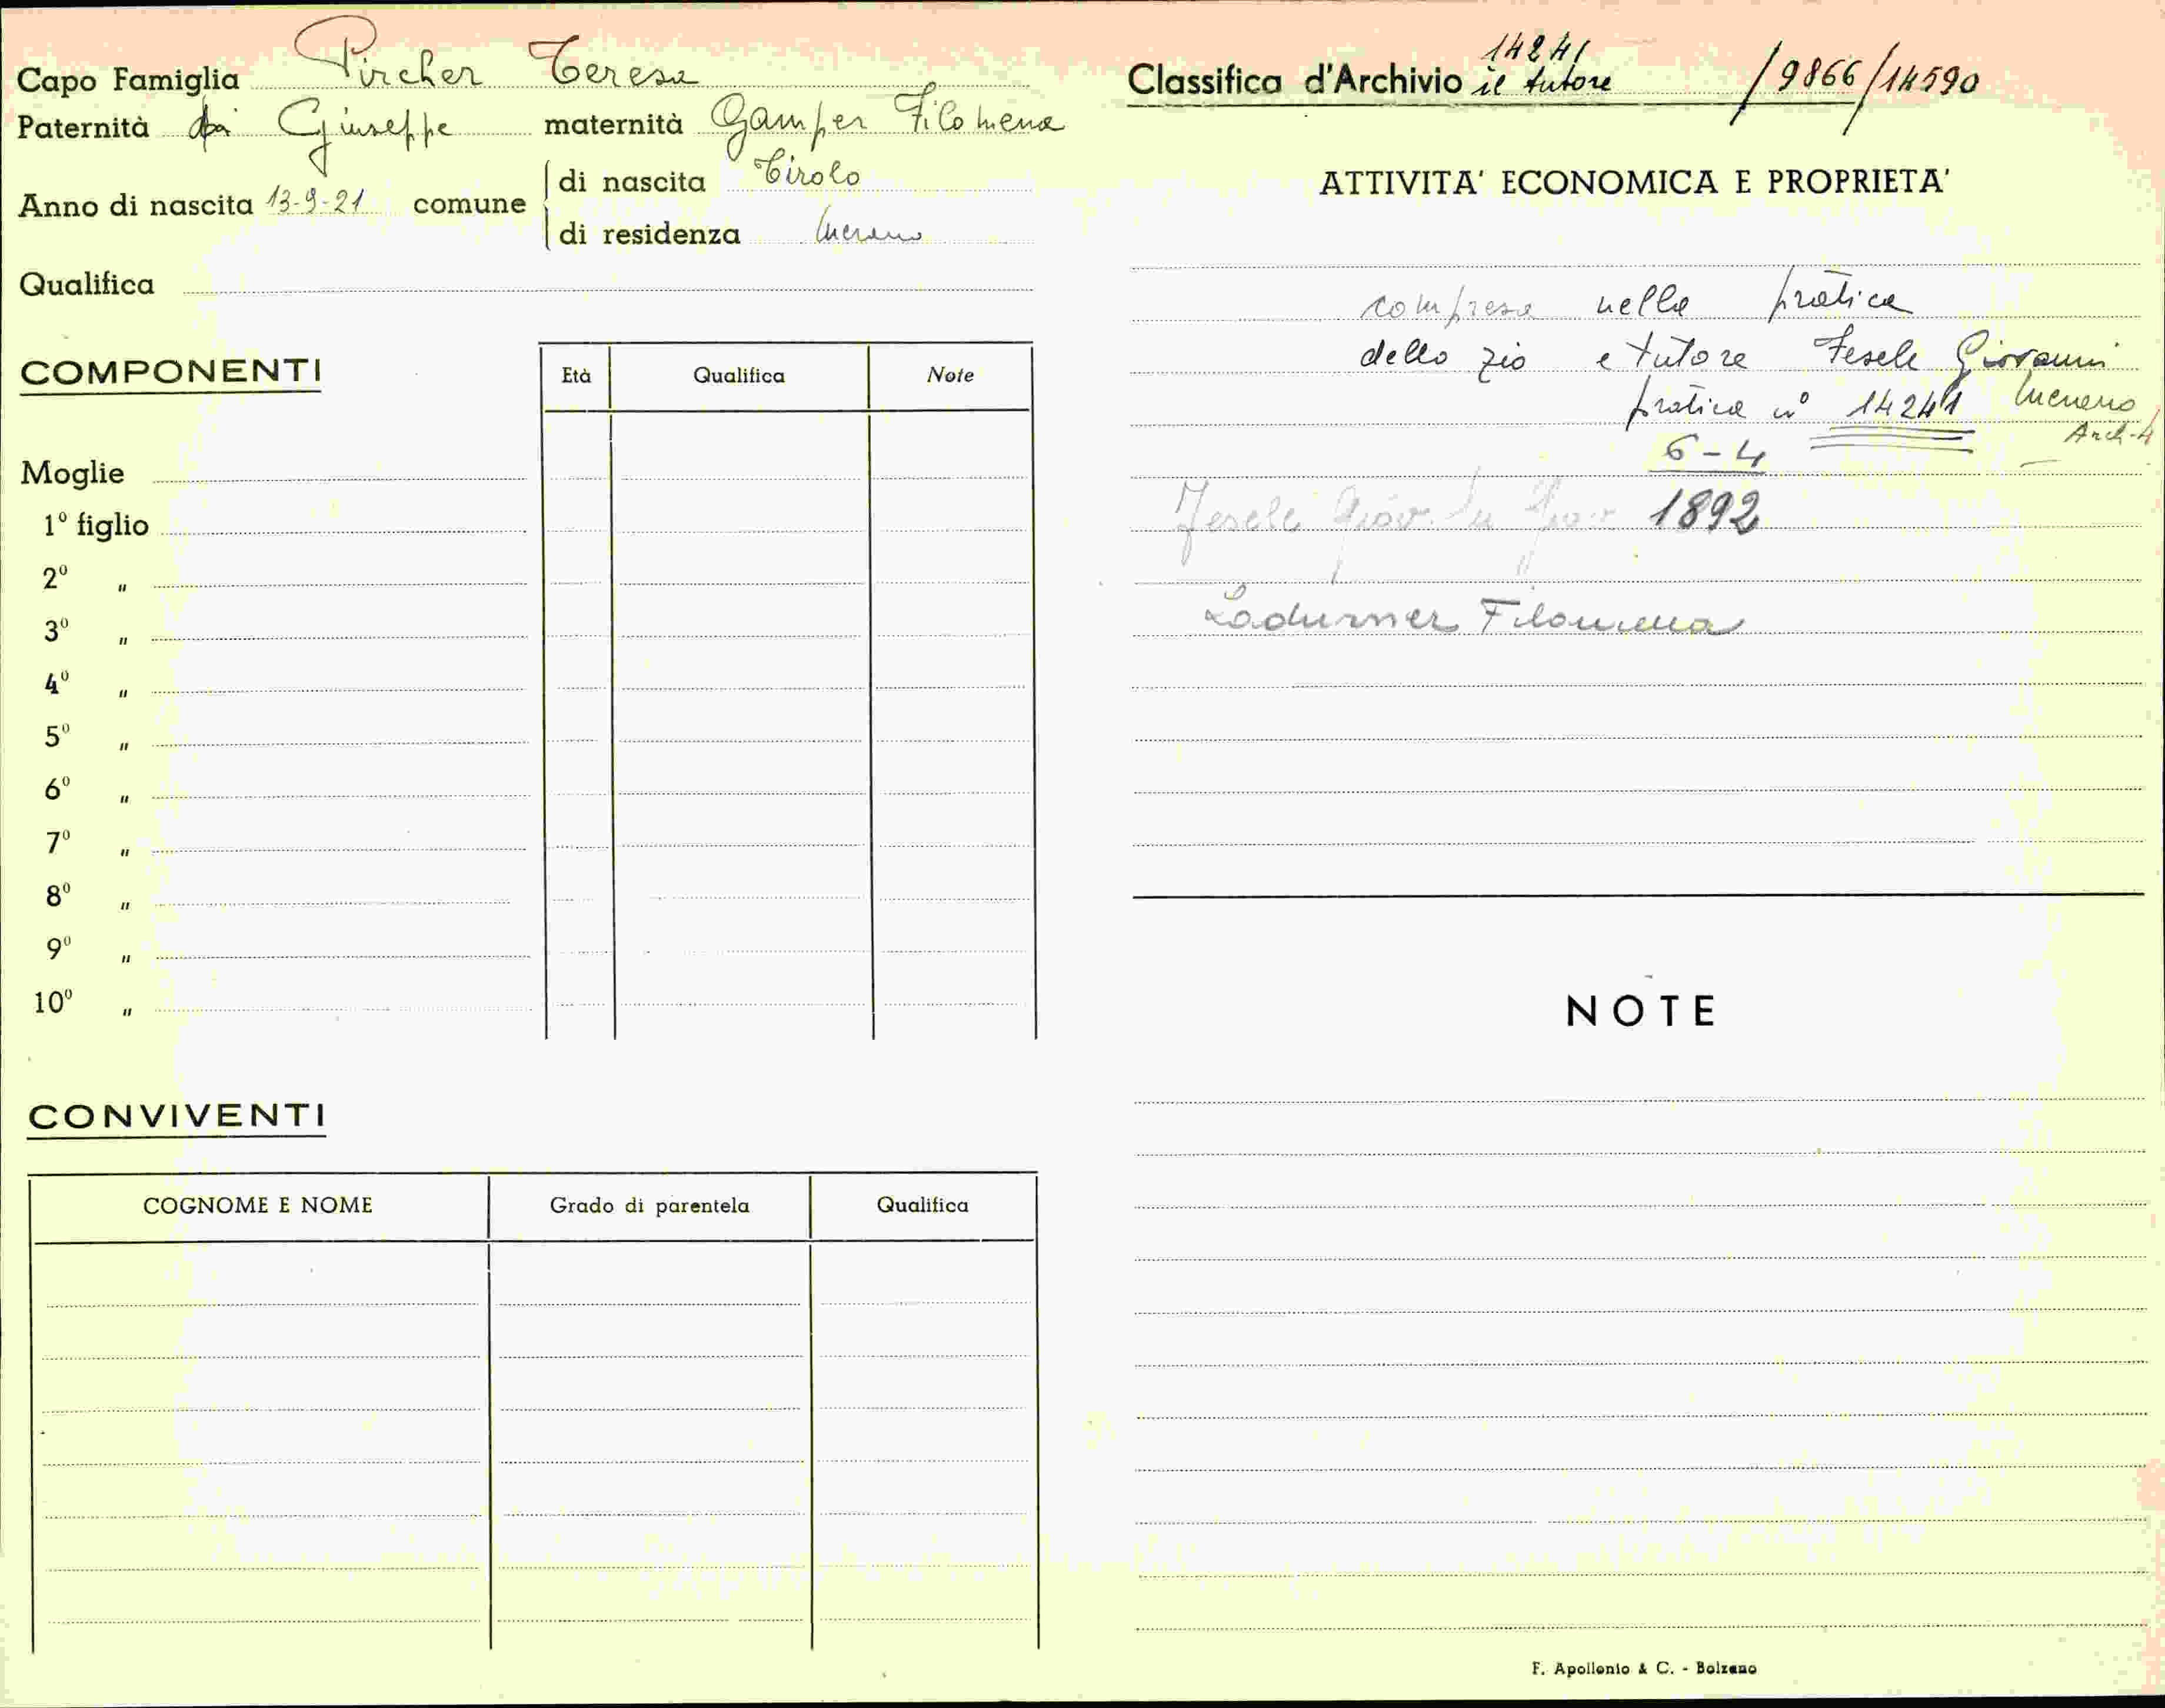 Capo Famiglia Pircher Teresa
Paternità di Giuseppe maternità Gamper Filomena
Anno di nascita 13-9-21 comune
di nascita Tirolo
di residenza Merano
Qualifica
COMPONENTI
Età Qualifica Note
Moglie
1º figlio
2º "
3º "
4º "
5º "
6º "
7º "
8º "
9º "
10º "
CONVIVENTI
COGNOME E NOME Grado di parentela Qualifica
14241
Classifica d'Archivio il tutore /9866/14590
ATTIVITA' ECONOMICA E PROPRIETA'
compresa nella pratica
dello zio e tutore Fesele Giovanni
pratica nº 14241 Merano
Arch-4
6-4
Fesele Giov. fu 1892
Ladurner Filomena
NOTE
F. Apollonio & C. - Bolzano